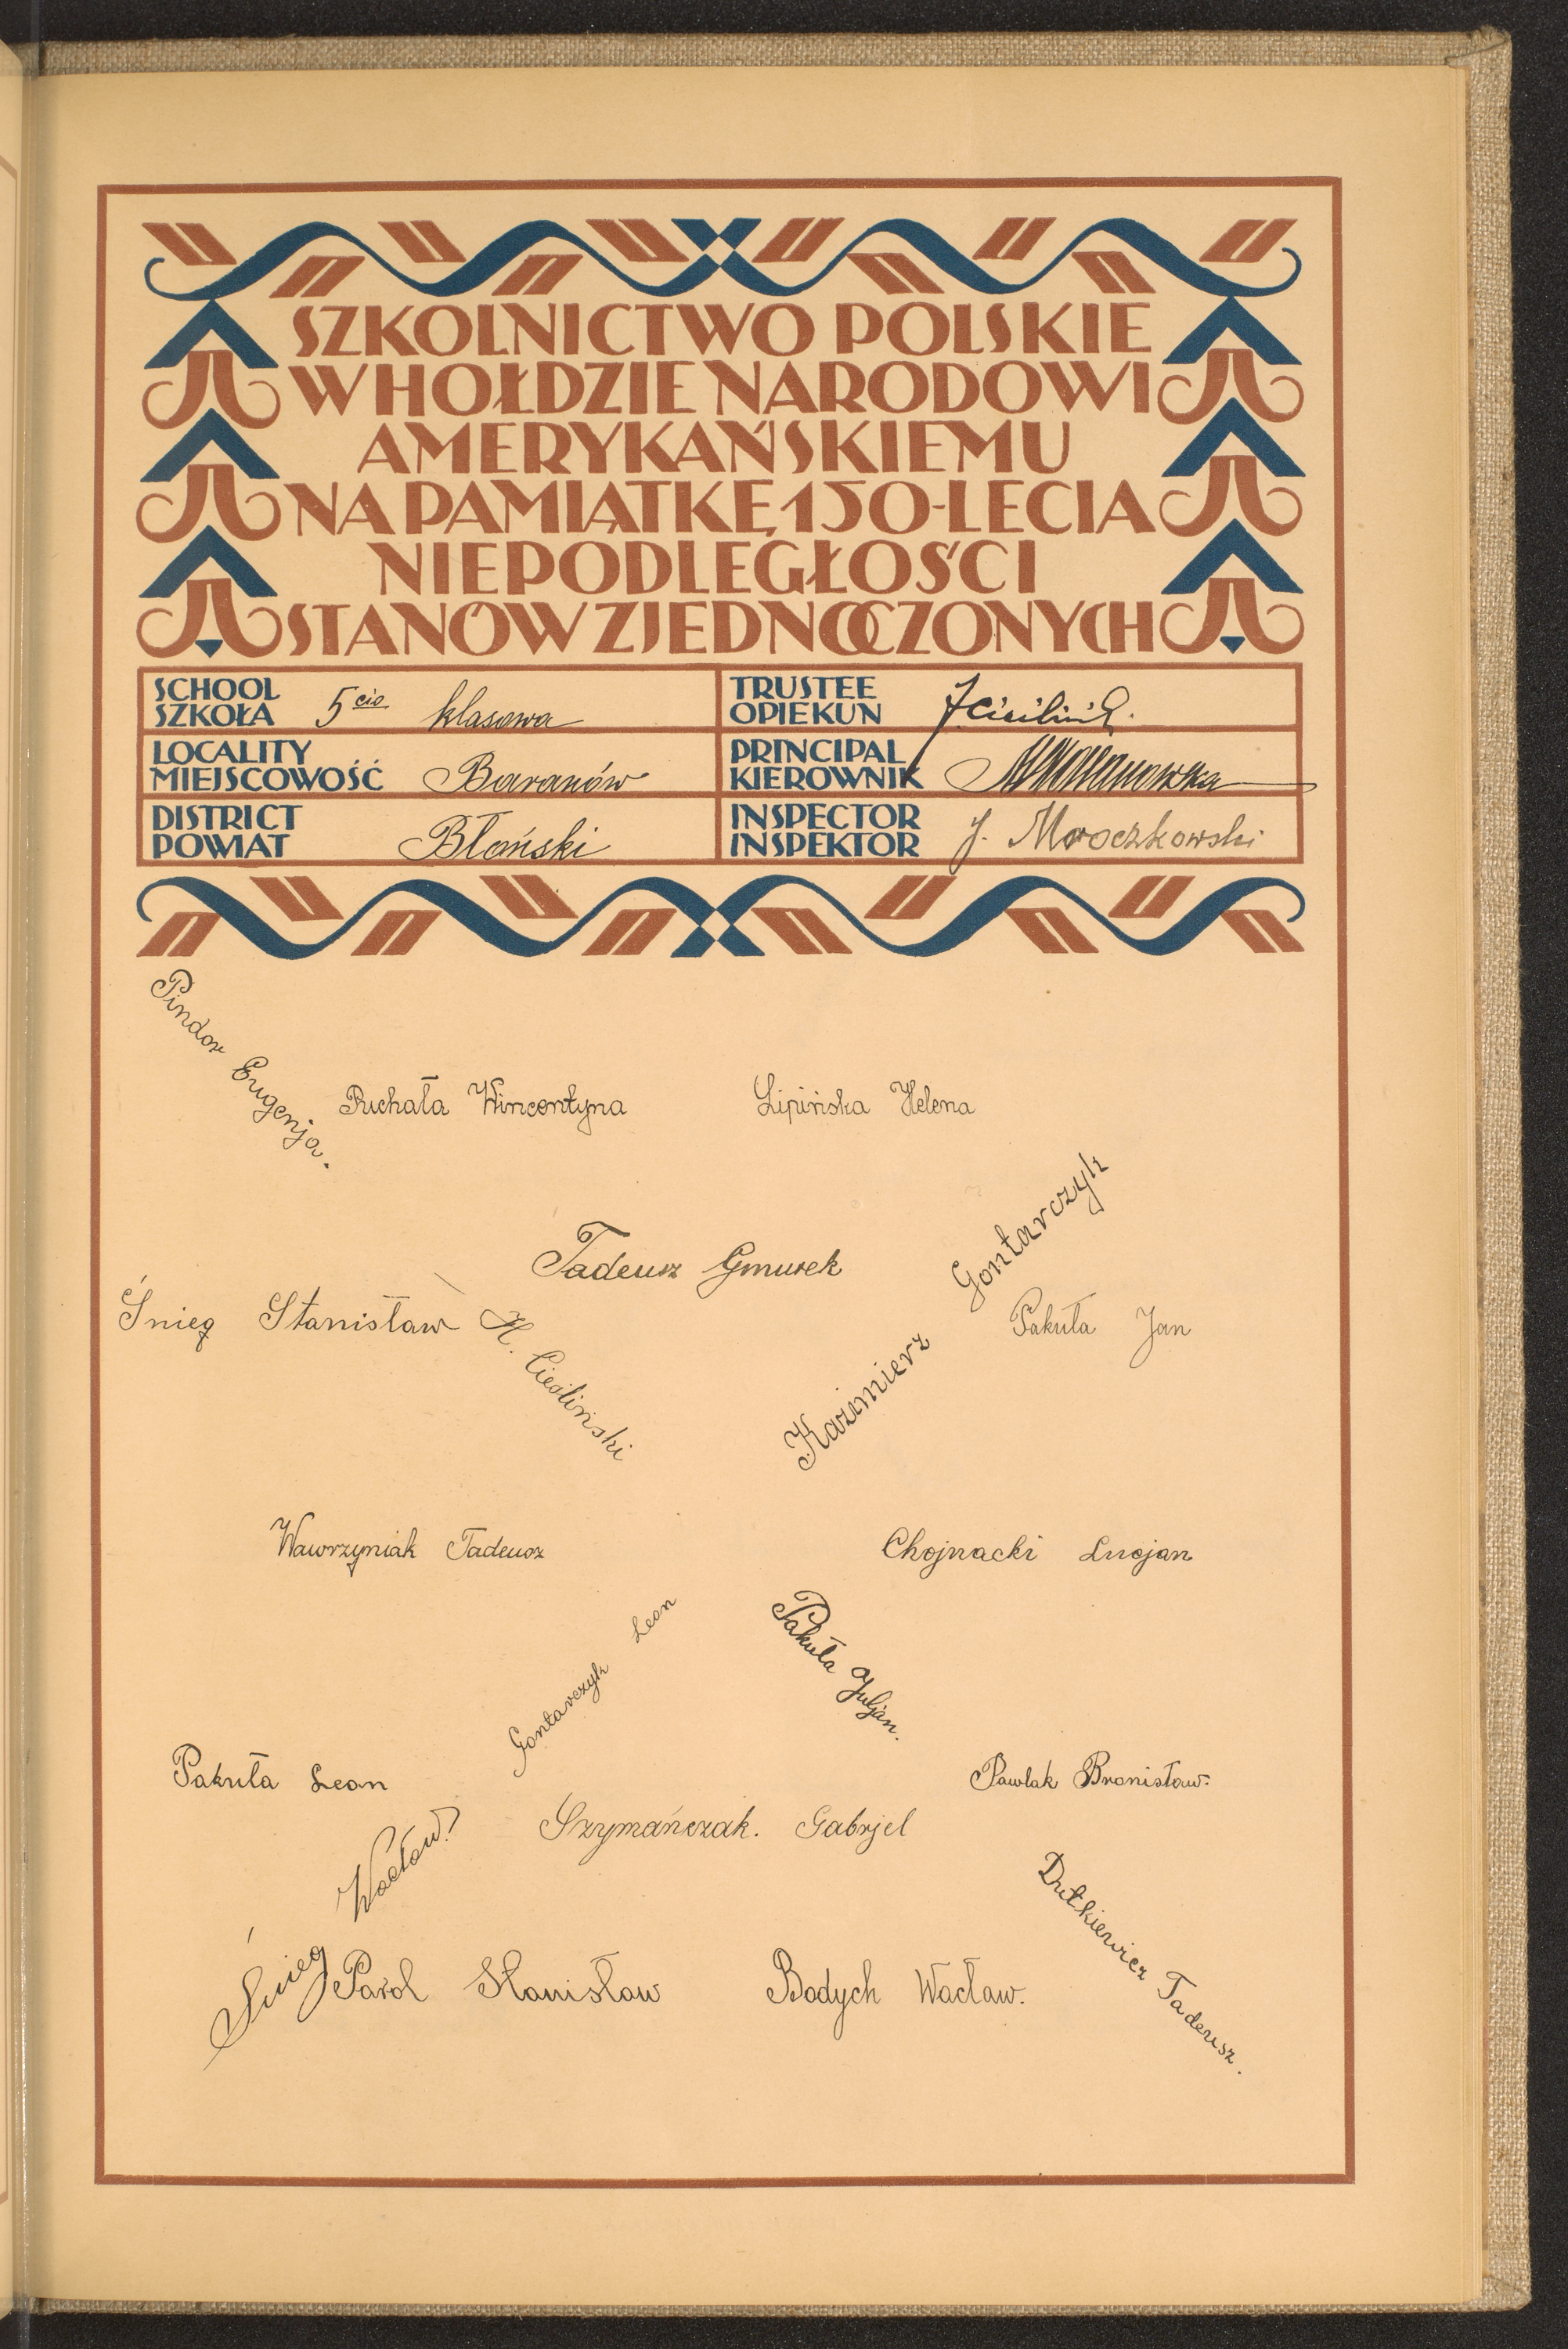 SZKOLNICTWO POLSKIE
W HOŁDZIE NARODOWI
AMERYKAŃSKIEMU
NA PAMIĄTKĘ 150-LECIA
NIEPODLEGŁOŚCI
STANÓW ZJEDNOCZONYCH
SCHOOL
SZKOŁA 5cio klasowa
TRUSTEE
OPIEKUN
LOCALITY
MIEJSCOWOŚĆ Baranów
PRINCIPAL
KIEROWNIK
DISTRICT
POWIAT Błoński
INSPECTOR
INSPEKTOR J. Mroczkowski
Pindor Eugenja.
Puchała Wincentyna
Lipińska Helena
Tadeusz Gmurek
Kazimierz Gontarczyk
Śnieg Stanisław
H. Cieśliński
Pakuła Jan
Wawrzyniak Tadeusz
Chojnacki Lucjan
Gontarczyk Leon
Pakuła Juljan.
Pakuła Leon
Pawlak Bronisław.
Szymańczak. Gabrjel
Śnieg Wacław.
Dutkiewicz Tadeusz.
Parol Stanisław
Bodych Wacław.